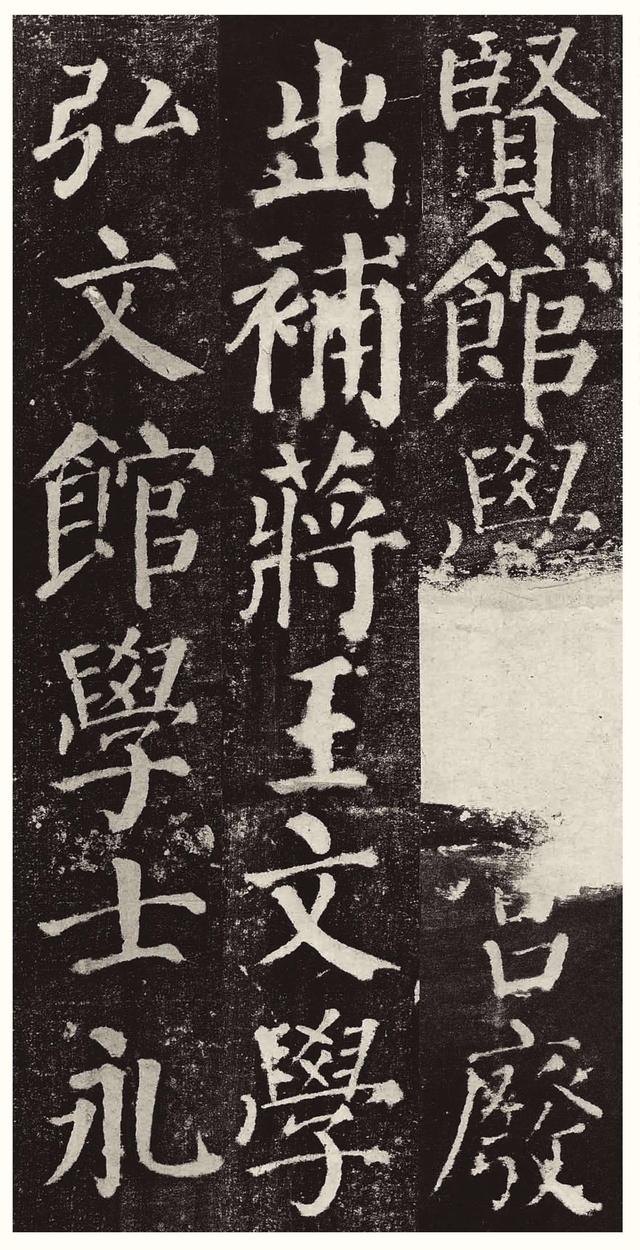 賢館學宮廢
出補蔣王文學
弘文館學士永